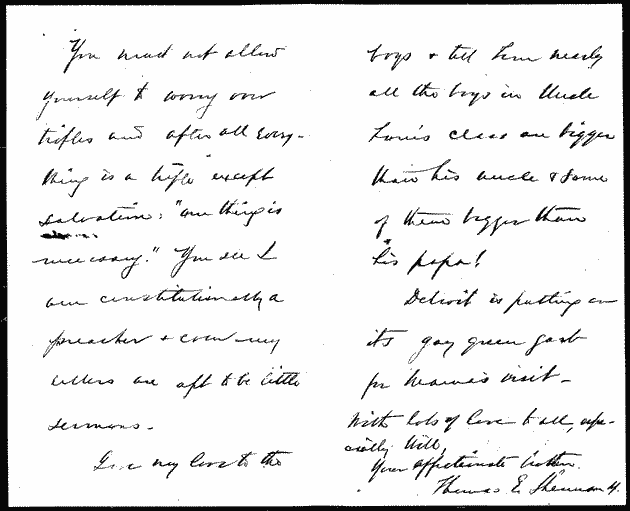 You must not allow
yourself to worry over
trifles and after all every-
thing is a trifle except
salvation: "one thing is
necessary." You see I
am constitutionally a
preacher & even my
letters are apt to be little
sermons.
Give my love to the
boys & tell Tom nearly
all the boys in Uncle
Tom's class are bigger
than his uncle & some
of them bigger than
his papa!
Detroit is putting on
its gay green garb
for Mama's visit -
With lots of love to all, espe-
cially Will,
Your affectionate brother
Thomas E. Sherman